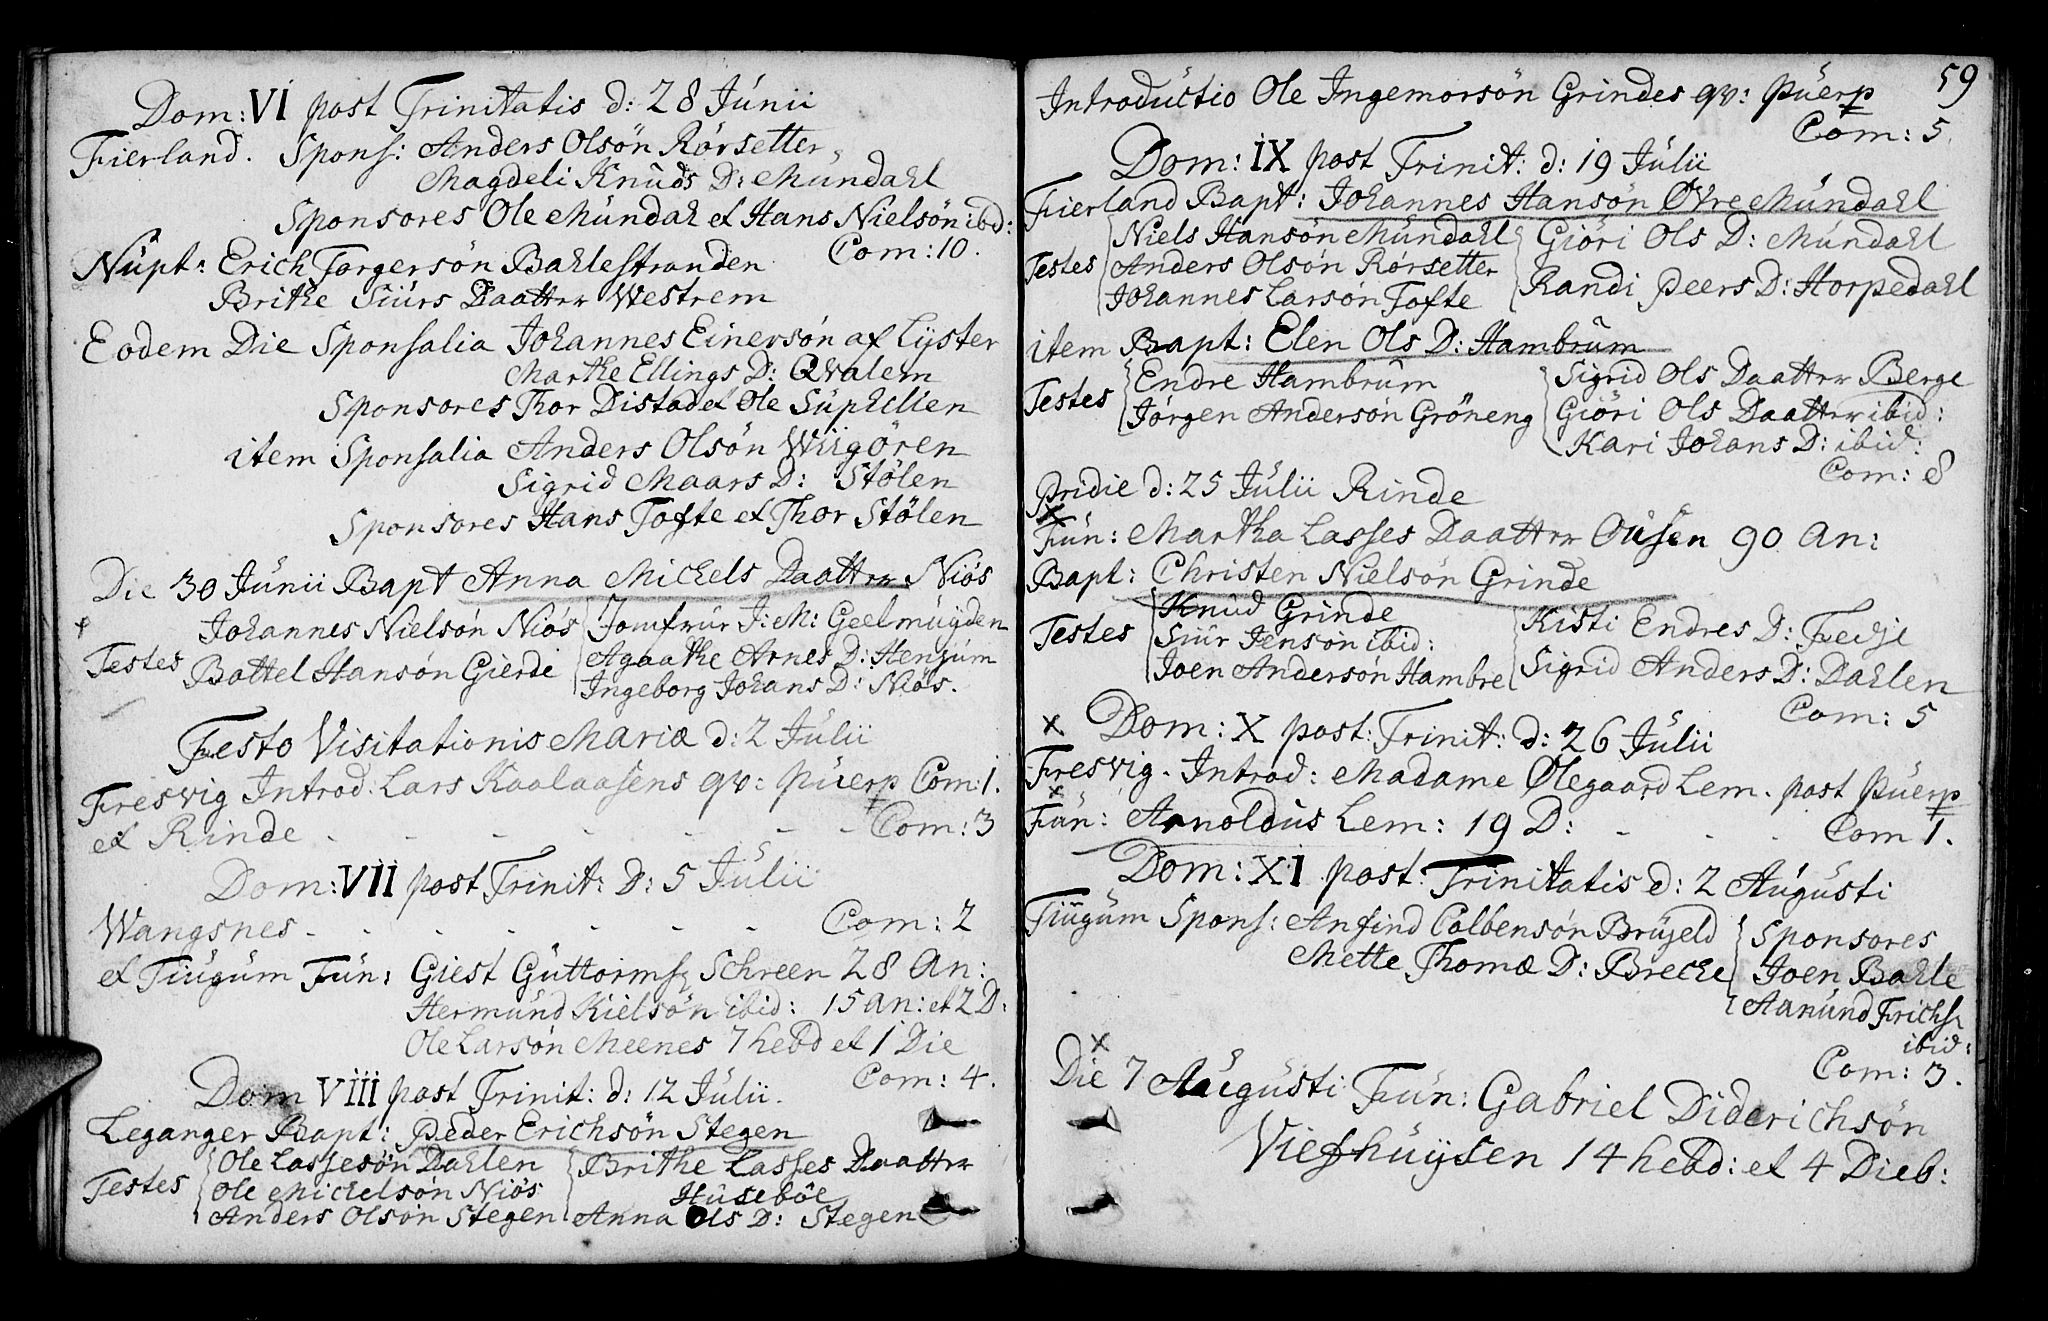 Dom: VI post Trinitatis d: 28 Júnii
Fierland. Spons: Anders Olsön Rörsetter
Magdeli Knúds D: Múndahl
Sponsores Ole Múndahl et Hans Nielsön ibd:
Com: 10.
Núpt: Erich Torgersön Bahlestranden
Brithe Siúrs Daatter Westrem
Eodem Die Sponsalia Johannes Einersön af Lÿster
Marthe Ellings D: Qvalem
Sponsores Thor Distad et Ole Súphellen
item Sponsalia Anders Olsön Wiigören
Sigrid Maars D: Stölen
Sponsores Hans Tofte et Thor Stölen
Die 30 Júnii Bapt Anna Michels Daatter Niös
Johannes Nielsön Niös Jomfrúr J: M: Geelmúyden
Testes Battel Hansön Gierde Agaathe Arnes D: Henjúm
Ingeborg Johans D: Niös.
Festo Visitationis Mariæ d: 2 Júlii
Fresvig Introd: Lars Kaalaasens qv: púerp Com: 1.
et Rinde - - - - - - Com: 3
Dom: VII post Trinit: D: 5 Júlii
Wangsnes - - - - - - Com: 2
et Tiúgúm Fún: Giest Gúttorms Schreen 28 An:
Hermúnd Kielsön ibid: 15 an: et 2 D:
Ole Larsön Meenes 7 hebd et 1 Die
Com: 4.
Dom VIII post Trinit: d: 12 Júlii.
Leganger Bapt: Peder Erichsön Stegen
Ole Lassesön Dahlen Brithe Lasses Daatter
Testes Ole Michelsön Niös Húseböe
Anders Olsön Stegen Anna Ols D: Stegen
59
Introdúctio Ole Ingemorsön Grindes qv: púerp
Com: 5.
Dom: IX post Trinit: d: 19 Júlii
Fierland Bapt: Johannes Hansön Øvre Múndahl
Niels Hansön Múndahl Giöri Ols D: Múndahl
Testes Anders Olsön Rörsetter
Johannes Larsön Tofte Randi Peers D: Horpedahl
item Bapt: Elen Ols D: Hambrúm
Endre Hambrúm Sigrid Ols Daatter Berge
Testes Jörgen Andersön Gröneng Giöri Ols Daatter ibid:
Kari Johans D: ibid:
Com: 8
Pridie d: 25 Júlii Rinde
Fún: Martha Lasses Daatter Oúsen 90 An:
Bapt: Christen Nielsön Grinde
Knúd Grinde Kisti Endres D: Fedje
Testes Siúr Jensön ibid:
Joen Andersön Hambre Sigrid Anders D: Dahlen
Com: 5
x Dom: X post: Trinit: d: 26 Júlii
Fresvig. Introd: Madame Ølegaard Lem. post Púerp
x
Fún: Arnoldús Lem: 19 D: - - - Com 1.
Dom: XI post Trinitatis d: 2 Aúgústi
Tiúgúm Spons: Anfind Colbensön Brújeld Sponsores
Mette Thomæ D: Breche Joen Bahle
Aanúnd Frichs
ibid:
x Com: 3.
Die 7 Aúgústi Fún: Gabriel Diderichsön
Viefhúÿsen 14 hebd: et 4 Dieb: